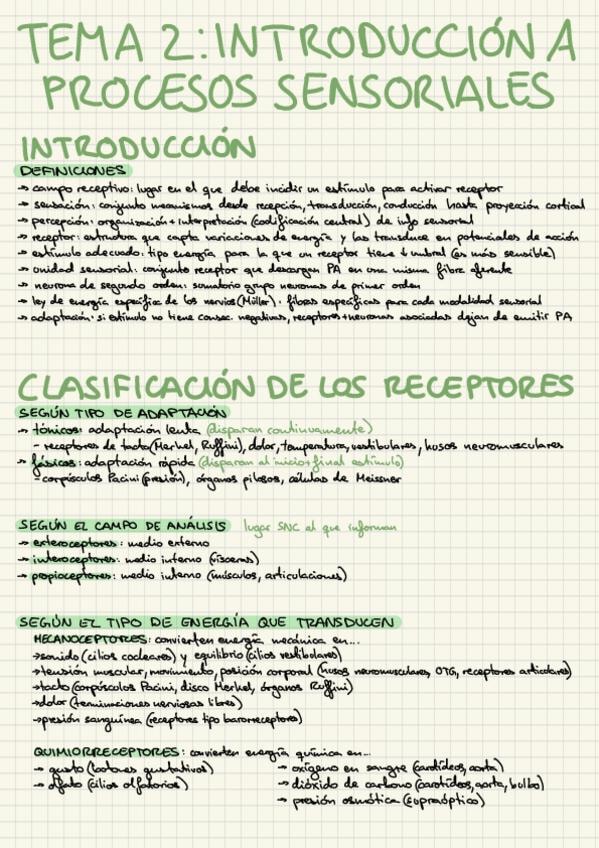 TEMA 2: INTRODUCCIÓN A
PROCESOS SENSORIALES
INTRODUCCIÓN
DEFINICIONES
→ campo receptivo: lugar en el que debe incidir un estímulo para activar receptor
→ sensación: conjunto mecanismos desde recepción, transducción, conducción hasta proyección cortical
→ percepción: organización + interpretación (codificación central) de info sensorial
→ receptor: estructura que capta variaciones de energía y las transduce en potenciales de acción
→ estímulo adecuado: tipo energía para la que un receptor tiene ↓ umbral (es más sensible)
→ unidad sensorial: conjunto receptor que descargan PA en una misma fibra aferente
→ neurona de segundo orden: sumatorio grupo neuronas de primer orden
→ ley de energía específica de los nervios (Müller): fibras específicas para cada modalidad sensorial
→ adaptación: si estímulo no tiene consec. negativas, receptores + neuronas asociadas dejan de emitir PA
CLASIFICACIÓN DE LOS RECEPTORES
SEGÚN TIPO DE ADAPTACIÓN
→ tónicos: adaptación lenta (disparan continuamente)
- receptores de tacto (Merkel, Ruffini), dolor, temperatura, vestibulares, husos neuromusculares
→ fásicos: adaptación rápida (disparan al inicio + final estímulo)
- corpúsculos Pacini (presión), órganos pilosos, células de Meissner
SEGÚN EL CAMPO DE ANÁLISIS lugar SNC al que informan
→ exteroceptores: medio externo
→ interoceptores: medio interno (vísceras)
→ propioceptores: medio interno (músculos, articulaciones)
SEGÚN EL TIPO DE ENERGÍA QUE TRANSDUCEN
MECANOCEPTORES: convierten energía mecánica en...
→ sonido (cilios cocleares) y equilibrio (cilios vestibulares)
→ tensión muscular, movimiento, posición corporal (husos neuromusculares, OTG, receptores articulares)
→ tacto (corpúsculos Pacini, disco Merkel, órganos Ruffini)
→ dolor (terminaciones nerviosas libres)
→ presión sanguínea (receptores tipo barorreceptores)
QUIMIORRECEPTORES: convierten energía química en...
→ gusto (botones gustativos)
→ olfato (cilios olfatorios)
→ oxígeno en sangre (carotídeos, aorta)
→ dióxido de carbono (carotídeos, aorta, bulbo)
→ presión osmótica (supraóptico)